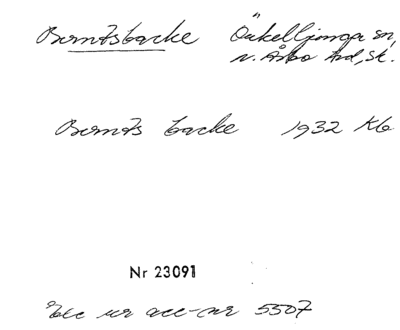 Berntsbacke Örkelljunga sn,
N. Åsbo hd, Sk.
Bernts backe 1932 Kb
Nr 23091
Exc ur acc-nr 5507